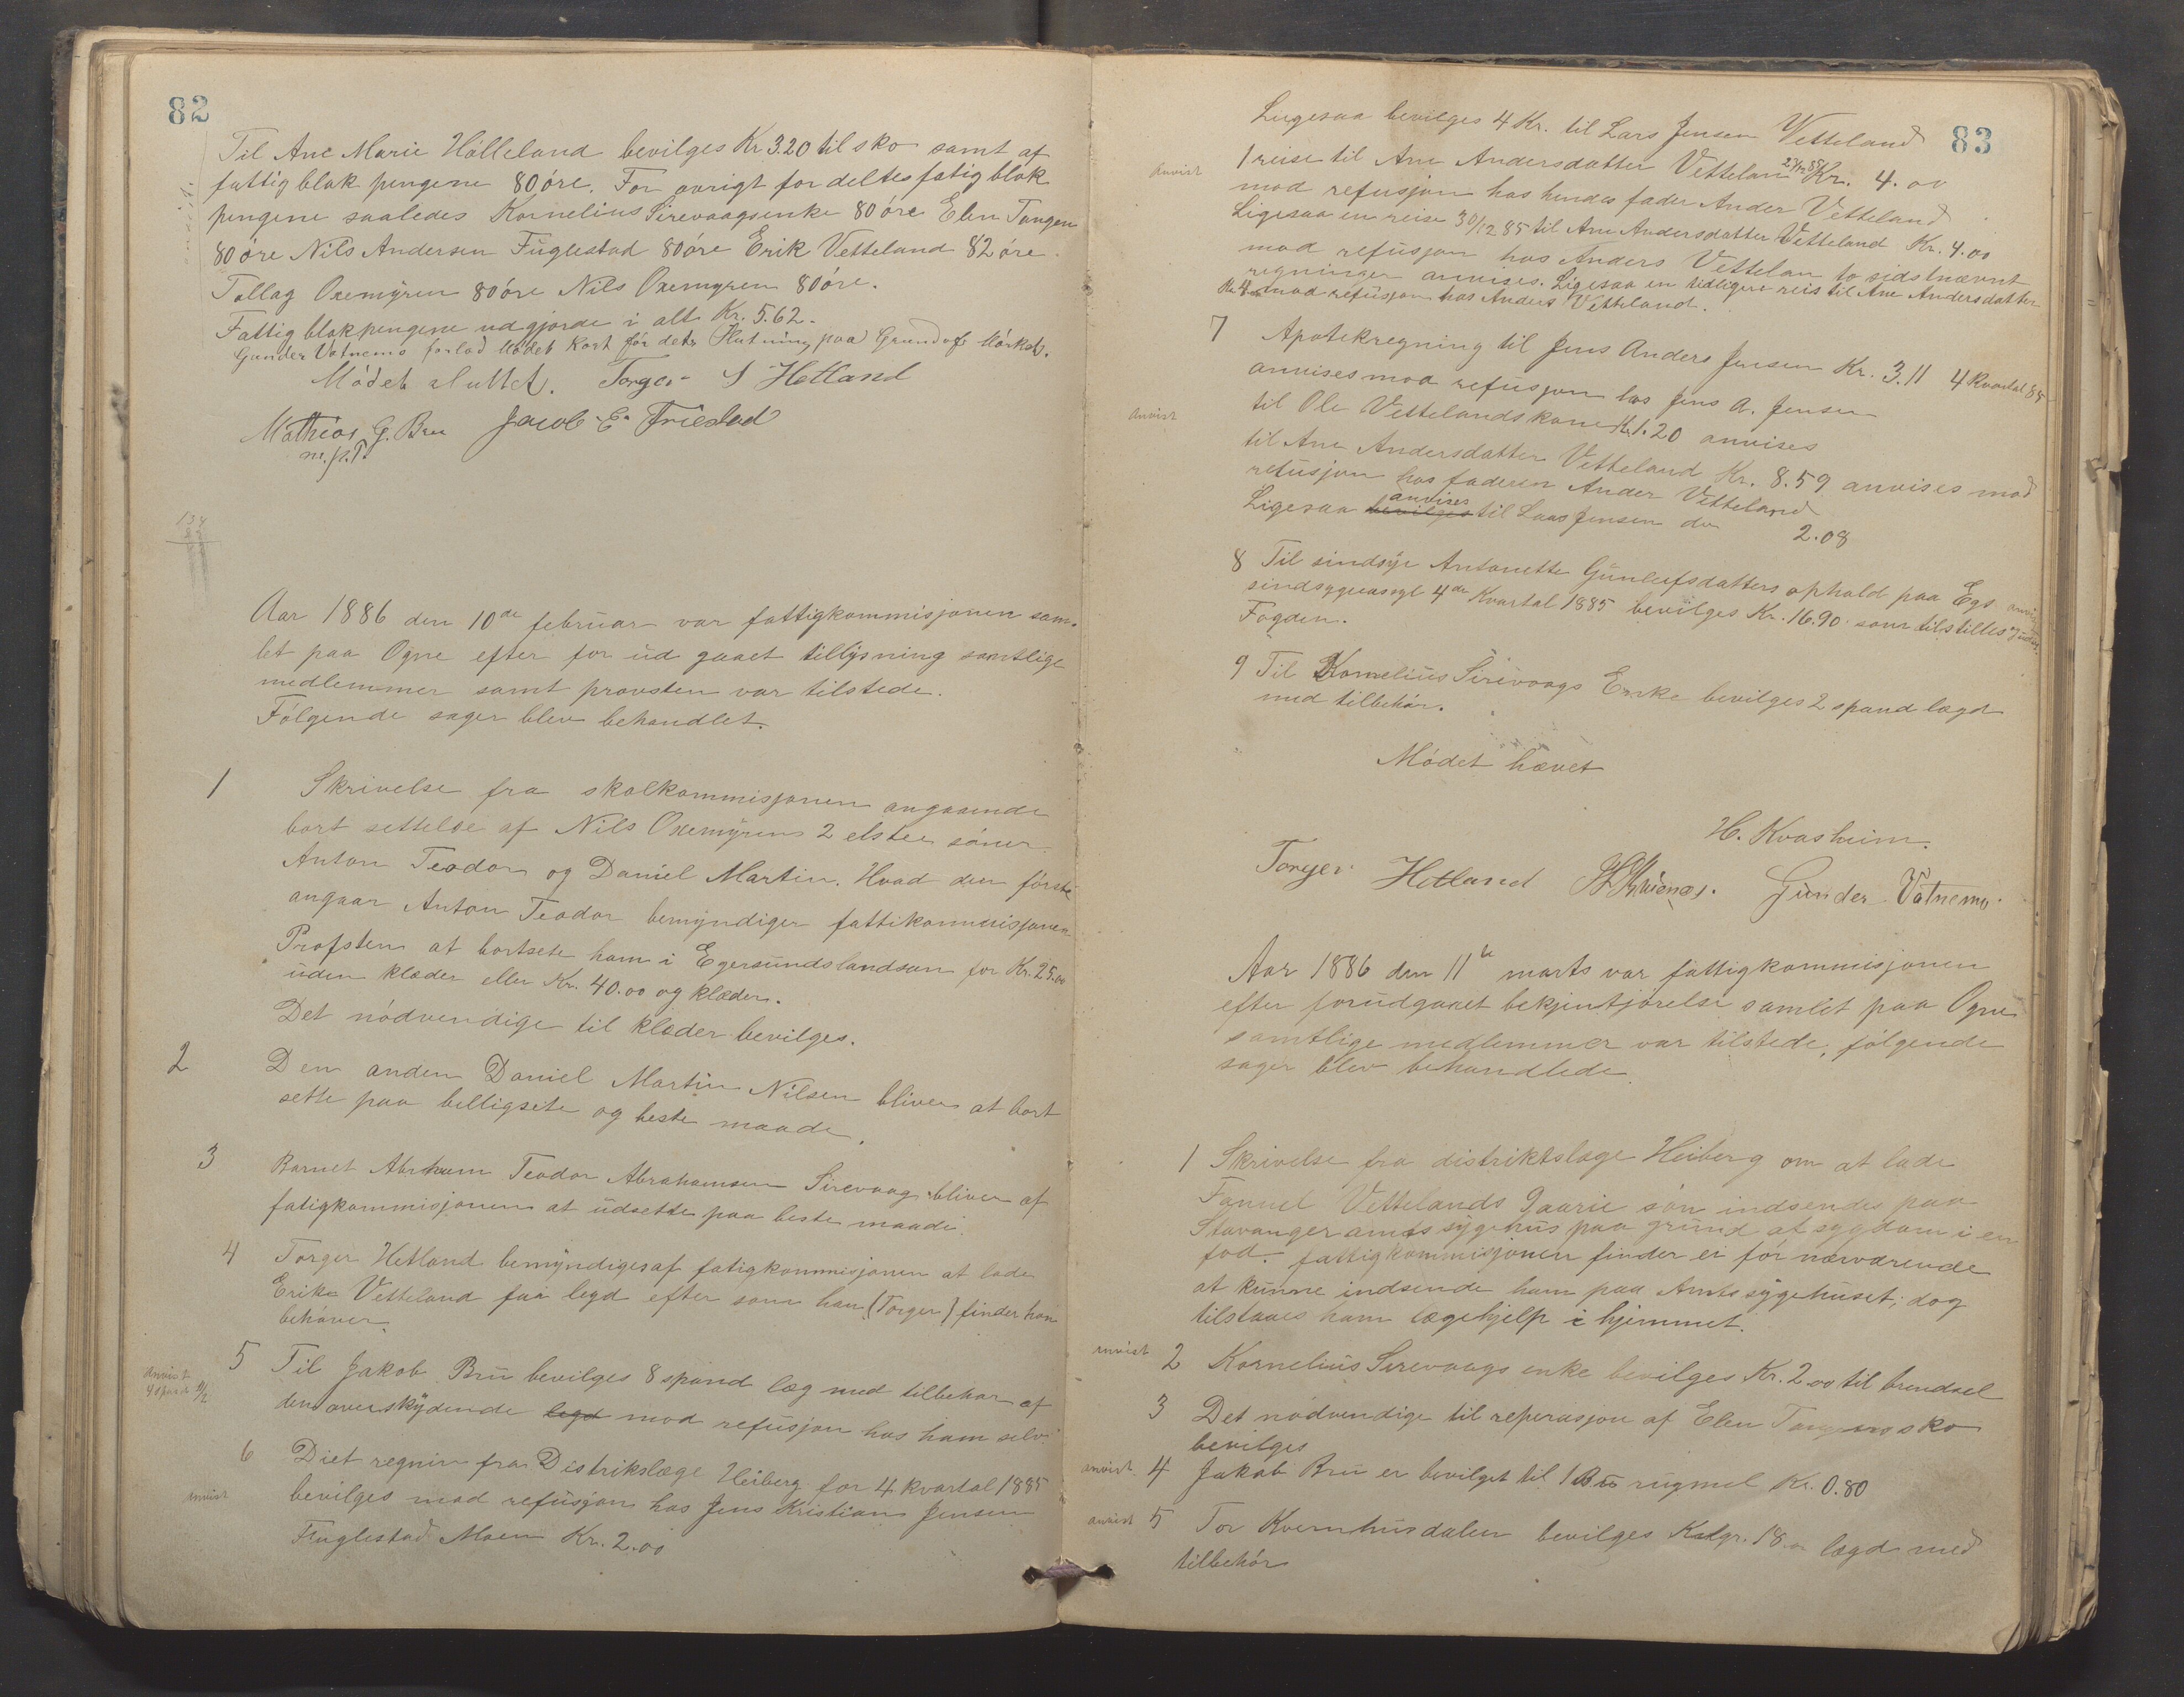 82
Til Ane Marie Hölleland bevilges Kr 3.20 til sko samt af
fattigblok pengene 80 öre. For øvrigt fordeltes fatigblok
pengene saaledes Kornelius Sirevaagsenke 80 öre Elen Tangen
80 öre Nils Andersen Fuglestad 80 öre Erik Vetteland 82 öre.
Tollag Oxemyren 80 öre Nils Oxemyren 80 öre.
Fattigblokpengene udgjorde i alt Kr. 5.62.
Gunder Vatnemo forlod Mödet kort för dets Slutning paa Grund af Mörket.
Mödet sluttet. Torger S Hetland
Mathias G. Bru Jacob E. Friestad
m.p.P.
138
Aar 1886 den 10de februar var fattigkommisjonen sam-
let paa Ogne efter for ud gaaet tillysning samtlige
medlemmer samt provsten var tilstede.
Fölgende sager blev behandlet.
1 Skrivelse fra skolkommisjonen angaaende
bort settelse af Nils Oxemyrens 2 elste söner
Anton Teodor og Daniel Martin. Hvad den förste
angaar Anton Teodor bemyndiger fattikommisjonen
Profsten at bortsete ham i Egersundslandsan for Kr. 25.00
uden klæder eller Kr. 40.00 og klæder.
Det nödvendige til klæder bevilges.
2 Den anden Daniel Martin Nilsen bliver at bort
sette paa belligsete og beste maade.
3 Barnet Abrham Teodor Abrahamsen Sirevaag bliver af
fatigkommisjonen at udsette paa beste maade.
4 Torger Hetland bemyndiges af fatigkommisjonen at lade
Erik Vetteland faa legd efter som han (Torger) finder han
behöver.
anvist 4 spand 11/2
5 Til Jakob Bru bevilges 8 spand læg med tilbehør af
den overskydende legd mod refusjon hos ham selv.
6 Diet regnin fra Distrikslæge Heiberg for 4 kvartal 1885
anvist bevilges mod refusjon hos Jens Kristian Jensen
Fuglestad Moen Kr. 2.00
83
Liigesaa bevilges 4 Kr. til Lars Jensen Vetteland
anvist 1 reise til Ane Andersdatter Vettelan 27/12 85 Kr. 4.00
mod refusjon hos hendes fader Ander Vetteland
Ligesaa en reise 30/12 85 til Ane Andersdatter Vetteland Kr. 4.00
mod refusjon hos Anders Vettelan to sidstnævnt
regninger anvises. Ligesaa en tidligere reis til Ane Andersdatter
Kr. 4 mod refusjon hos Anders Vetteland.
7 Apotekregning til Jens Anders Jensen Kr. 3.11 4 Kvartal 85
anvises mod refusjon hos Jens A. Jensen
anvist til Ole Vettelands kone Kr. 1.20 anvises
til Ane Andersdatter Vetteland Kr. 8.59 anvises mod
refusjon hos faderen Ander Vetteland
Ligesaa bevilges anvises til Laas Jensen do 2.08
8 Til sindsye Antonette Gunleifsdatters ophold paa Egs
sindsygeasyl 4de Kvartal 1885 bevilges Kr. 16.90 som tilstilles
Fogden.
9 Til Kornelius Sirevaags Enke bevilges 2 spand lægd
med tilbehör.
Mödet hævet
H. Kvasheim.
Torger Hetland Gunder Vatnemo.
Aar 1886 den 11te marts var fattigkommisjonen
efter forudgaaet bekjentjörelse samlet paa Ogne
samtlige medlemmer var tilstede, fölgende
sager blev behandlede.
1 Skrivelse fra distriktslæge Heiberg om at lade
Fanuel Vettelands 9 aarie sön indsendes paa
Stavanger amts sygehus paa grund at sygdom i en
fod. fattigkommisjonen finder ei for nærværende
at kunne indsende ham paa Amtssygehuset; dog
tilstaaes ham lægehjelp i hjemmet.
anvist 2 Kornelius Sirevaags enke bevilges Kr. 2.00 til brendsel
3 Det nödvendige til reperasjon af Elen Tangens sko
bevilges
anvist 4 Jakob Bru er bevilget til 1 rugmel Kr. 0.80
anvist 5 Tor Kvernhusdalen bevilges 18 lægd med
tilbehör